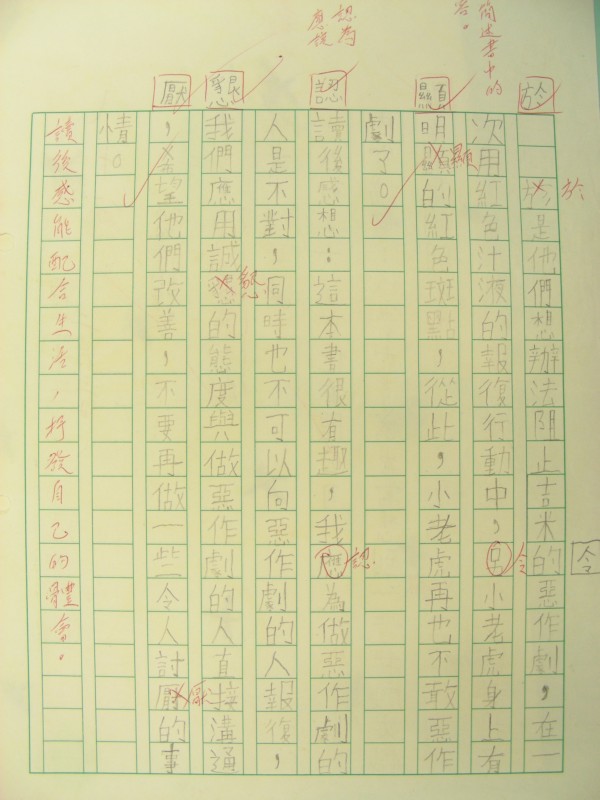 簡述書中的
容。
認為
應從
於
顯
認
懇
厭
是他們想辦法阻止吉米的惡作劇，在一
於
令
次用紅色汁液的報復行動中，令小老虎身上有
明的紅色斑點，從此，小老虎再也不敢惡作
顯
劇了。
讀後感想：這本書很有趣，我為做惡作劇的
認
人是不對，同時也不可以向惡作劇的人報復，
我們應用誠的態度與做惡作劇的人直接溝通
懇
，希望他們改善，不要再做一些令人討的事
厭
情。
讀後感能配合生活，抒發自己的體會。